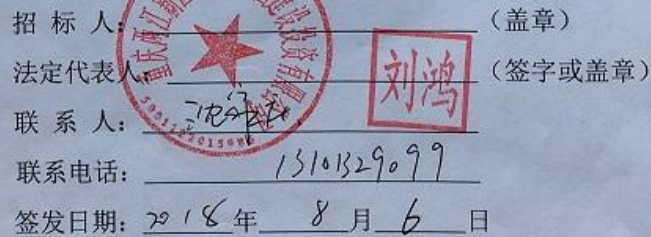 招标人：（盖章）
法定代表人：刘鸿（签字或盖章）
联系人：沈
联系电话：13101329099
签发日期：2018年8月6日